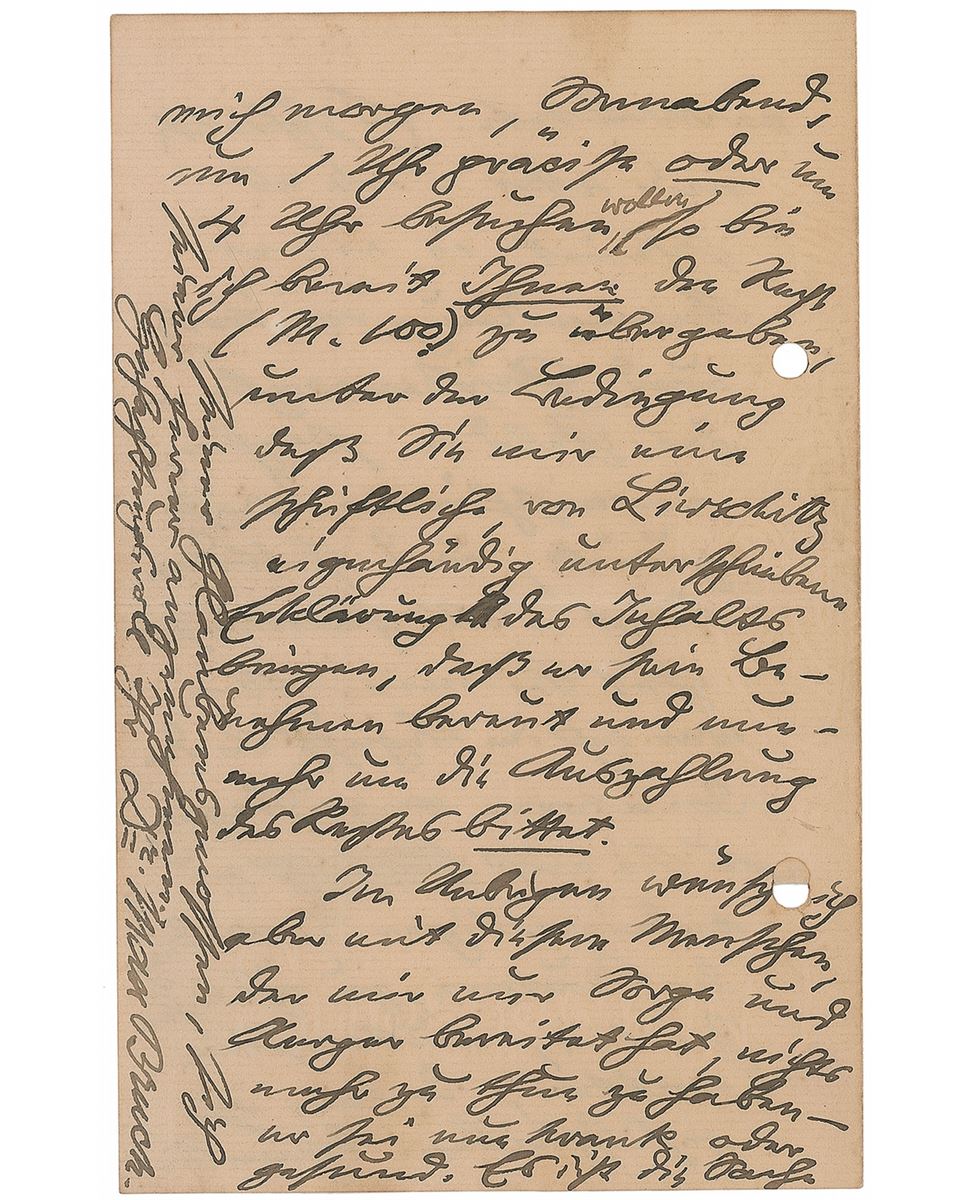 mich morgen, Sonnabend,
um 1 Uhr präcise oder um
4 Uhr besuchen wollen, so bin
ich bereit Ihnen den Rest
(M. 100) zu übergeben,
unter der Bedingung
daß Sie mir eine
schriftliche, von Lierschitz
eigenhändig unterschriebene
Erklärung des Inhalts
bringen, daß er sein Be-
nehmen bereut und nun-
mehr um die Auszahlung
des Restes bittet.
Im Uebrigen wünsche ich
aber mit diesem Menschen,
der mir nur Sorge und
Aerger bereitet hat, nichts
mehr zu thun zu haben –
er sei nun krank oder
gesund. Es ist die Sache
seiner Glaubensgenossen, sich
seiner anzunehmen.
Hochachtungsvoll Ihr Dr. Max Bruch.